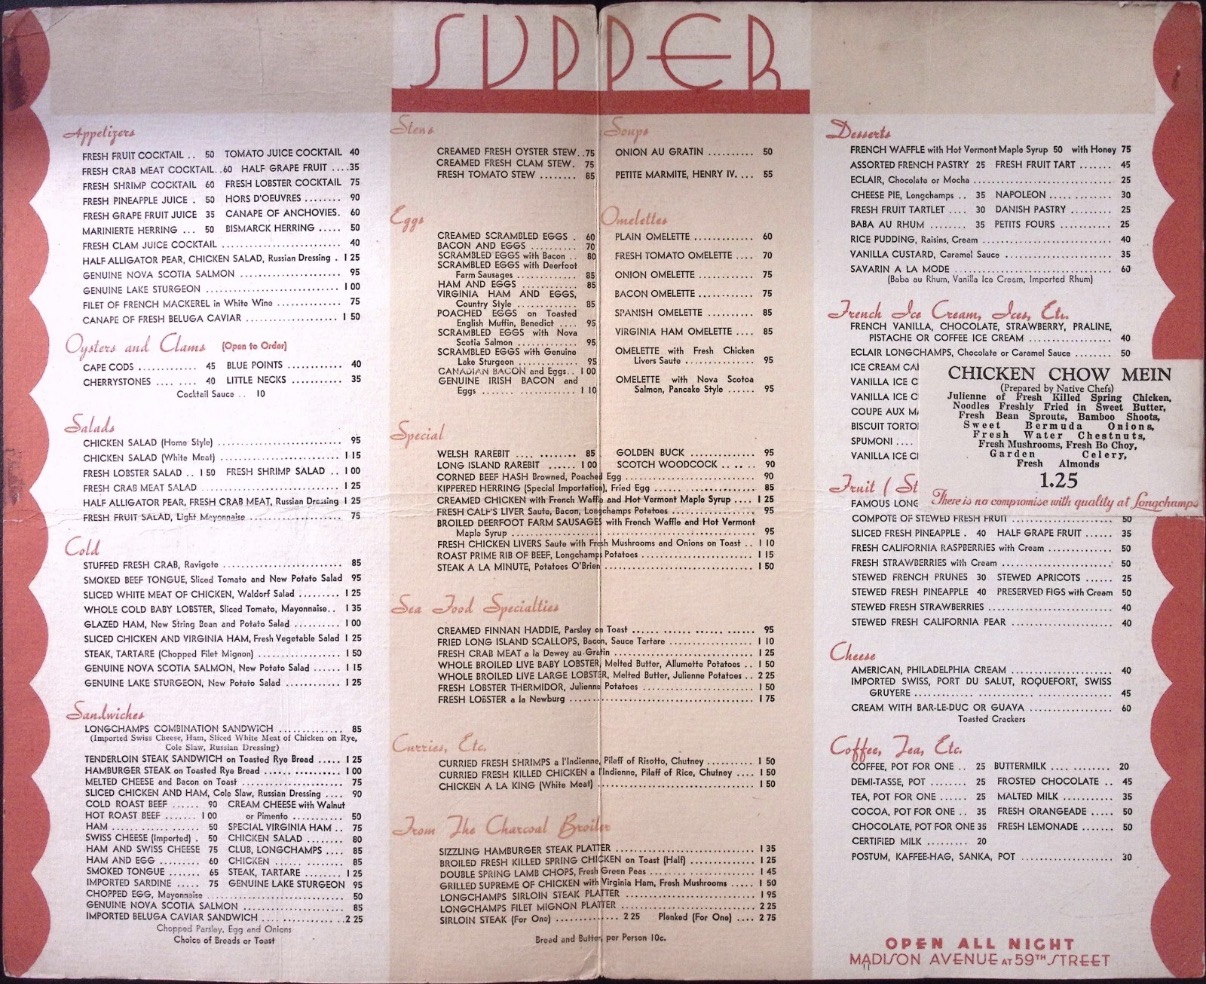 SUPPER
Appetizers
FRESH FRUIT COCKTAIL .. 50 TOMATO JUICE COCKTAIL 40
FRESH CRAB MEAT COCKTAIL..60 HALF GRAPE FRUIT ....35
FRESH SHRIMP COCKTAIL 60 FRESH LOBSTER COCKTAIL 75
FRESH PINEAPPLE JUICE . 50 HORS D'OEUVRES ........ 90
FRESH GRAPE FRUIT JUICE 35 CANAPE OF ANCHOVIES. 60
MARINIERTE HERRING ... 50 BISMARCK HERRING ..... 50
FRESH CLAM JUICE COCKTAIL ........................ 40
HALF ALLIGATOR PEAR, CHICKEN SALAD, Russian Dressing . 1 25
GENUINE NOVA SCOTIA SALMON ..................... 95
GENUINE LAKE STURGEON ........................... 1 00
FILET OF FRENCH MACKEREL in White Wine ............ 75
CANAPE OF FRESH BELUGA CAVIAR .................. 1 50
Oysters and Clams (Open to Order)
CAPE CODS ............ 45 BLUE POINTS ............. 40
CHERRYSTONES .... .... 40 LITTLE NECKS ............ 35
Cocktail Sauce .. 10
Salads
CHICKEN SALAD (Home Style) ......................... 95
CHICKEN SALAD (White Meat) ........................ 1 15
FRESH LOBSTER SALAD .. 1 50 FRESH SHRIMP SALAD .. 1 00
FRESH CRAB MEAT SALAD ........................... 1 25
HALF ALLIGATOR PEAR, FRESH CRAB MEAT, Russian Dressing 1 25
FRESH FRUIT SALAD, Light Mayonnaise ................. 75
Cold
STUFFED FRESH CRAB, Ravigote ....................... 85
SMOKED BEEF TONGUE, Sliced Tomato and New Potato Salad 95
SLICED WHITE MEAT OF CHICKEN, Waldorf Salad ........ 1 25
WHOLE COLD BABY LOBSTER, Sliced Tomato, Mayonnaise.. 1 35
GLAZED HAM, New String Bean and Potato Salad ........ 1 00
SLICED CHICKEN AND VIRGINIA HAM, Fresh Vegetable Salad 1 25
STEAK, TARTARE (Chopped Filet Mignon) ............... 1 50
GENUINE NOVA SCOTIA SALMON, New Potato Salad ...... 1 15
GENUINE LAKE STURGEON, New Potato Salad ............ 1 25
Sandwiches
LONGCHAMPS COMBINATION SANDWICH ................ 85
(Imported Swiss Cheese, Ham, Sliced White Meat of Chicken on Rye,
Cole Slaw, Russian Dressing)
TENDERLOIN STEAK SANDWICH on Toasted Rye Bread ..... 1 25
HAMBURGER STEAK on Toasted Rye Bread ............... 1 00
MELTED CHEESE and Bacon on Toast ..................... 75
SLICED CHICKEN AND HAM, Cole Slaw, Russian Dressing .... 90
COLD ROAST BEEF ...... 90 CREAM CHEESE with Walnut
HOT ROAST BEEF ....... 1 00 or Pimento ............. 50
HAM ................... 50 SPECIAL VIRGINIA HAM .. 75
SWISS CHEESE (Imported) . 50 CHICKEN SALAD ........ 80
HAM AND SWISS CHEESE 75 CLUB, LONGCHAMPS .... 85
HAM AND EGG ......... 60 CHICKEN ............... 85
SMOKED TONGUE ....... 65 STEAK, TARTARE ....... 1 25
IMPORTED SARDINE ..... 75 GENUINE LAKE STURGEON 95
CHOPPED EGG, Mayonnaise ............................ 50
GENUINE NOVA SCOTIA SALMON ....................... 85
IMPORTED BELUGA CAVIAR SANDWICH ................2 25
Chopped Parsley, Egg and Onions
Choice of Breads or Toast
Stews
CREAMED FRESH OYSTER STEW..75
CREAMED FRESH CLAM STEW. 75
FRESH TOMATO STEW ........ 65
Soups
ONION AU GRATIN .......... 50
PETITE MARMITE, HENRY IV. ... 55
Eggs
CREAMED SCRAMBLED EGGS . 60
BACON AND EGGS .......... 70
SCRAMBLED EGGS with Bacon .. 80
SCRAMBLED EGGS with Deerfoot
Farm Sausages ............ 85
HAM AND EGGS ............ 85
VIRGINIA HAM AND EGGS,
Country Style ............. 85
POACHED EGGS on Toasted
English Muffin, Benedict .... 95
SCRAMBLED EGGS with Nova
Scotia Salmon ............. 95
SCRAMBLED EGGS with Genuine
Lake Sturgeon ............. 95
CANADIAN BACON and Eggs.. 1 00
GENUINE IRISH BACON and
Eggs ..................... 1 10
Omelettes
PLAIN OMELETTE ........... 60
FRESH TOMATO OMELETTE .... 70
ONION OMELETTE .......... 75
BACON OMELETTE ........... 75
SPANISH OMELETTE ......... 85
VIRGINIA HAM OMELETTE .... 85
OMELETTE with Fresh Chicken
Livers Saute ............... 95
OMELETTE with Nova Scotoa
Salmon, Pancake Style ...... 95
Special
WELSH RAREBIT .... ........ 85 GOLDEN BUCK ............ 95
LONG ISLAND RAREBIT ...... 1 00 SCOTCH WOODCOCK .. .. . 90
CORNED BEEF HASH Browned, Poached Egg .................. 90
KIPPERED HERRING (Special Importation), Fried Egg .......... 85
CREAMED CHICKEN with French Waffle and Hot Vermont Maple Syrup .... 1 25
FRESH CALF'S LIVER Saute, Bacon, Longchamps Potatoes .......... 95
BROILED DEERFOOT FARM SAUSAGES with French Waffle and Hot Vermont
Maple Syrup ............................... 95
FRESH CHICKEN LIVERS Saute with Fresh Mushrooms and Onions on Toast .. 1 10
ROAST PRIME RIB OF BEEF, Longchamps Potatoes .............. 1 15
STEAK A LA MINUTE, Potatoes O'Brien ..................... 1 50
Sea Food Specialties
CREAMED FINNAN HADDIE, Parsley on Toast ................ 95
FRIED LONG ISLAND SCALLOPS, Bacon, Sauce Tartare ......... 1 10
FRESH CRAB MEAT a la Dewey au Gratin .................... 1 25
WHOLE BROILED LIVE BABY LOBSTER, Melted Butter, Allumette Potatoes .. 1 50
WHOLE BROILED LIVE LARGE LOBSTER, Melted Butter, Julienne Potatoes .. 2 25
FRESH LOBSTER THERMIDOR, Julienne Potatoes ............... 1 50
FRESH LOBSTER a la Newburg ............................. 1 75
Curries, Etc.
CURRIED FRESH SHRIMPS a l'Indienne, Pilaff of Risotto, Chutney ...... 1 50
CURRIED FRESH KILLED CHICKEN a l'Indienne, Pilaff of Rice, Chutney .... 1 50
CHICKEN A LA KING (White Meat) ......................... 1 50
From The Charcoal Broiler
SIZZLING HAMBURGER STEAK PLATTER ...................... 1 35
BROILED FRESH KILLED SPRING CHICKEN on Toast (Half) .......... 1 25
DOUBLE SPRING LAMB CHOPS, Fresh Green Peas .............. 1 45
GRILLED SUPREME OF CHICKEN with Virginia Ham, Fresh Mushrooms ..... 1 50
LONGCHAMPS SIRLOIN STEAK PLATTER ...................... 1 95
LONGCHAMPS FILET MIGNON PLATTER ...................... 2 25
SIRLOIN STEAK (For One) .............. 2 25 Planked (For One) .... 2 75
Bread and Butter, per Person 10c.
Desserts
FRENCH WAFFLE with Hot Vermont Maple Syrup 50 with Honey 75
ASSORTED FRENCH PASTRY 25 FRESH FRUIT TART ....... 45
ECLAIR, Chocolate or Mocha ........................... 25
CHEESE PIE, Longchamps .. 35 NAPOLEON ............. 30
FRESH FRUIT TARTLET .... 30 DANISH PASTRY ......... 25
BABA AU RHUM ........ 35 PETITS FOURS ........... 25
RICE PUDDING, Raisins, Cream .......................... 40
VANILLA CUSTARD, Caramel Sauce ...................... 35
SAVARIN A LA MODE ................................. 60
(Baba au Rhum, Vanilla Ice Cream, Imported Rhum)
French Ice Cream, Ices, Etc.
FRENCH VANILLA, CHOCOLATE, STRAWBERRY, PRALINE,
PISTACHE OR COFFEE ICE CREAM ................... 40
ECLAIR LONGCHAMPS, Chocolate or Caramel Sauce ....... 50
ICE CREAM CA
VANILLA ICE C
VANILLA ICE C
COUPE AUX M
BISCUIT TORTO
SPUMONI ....
VANILLA ICE C
CHICKEN CHOW MEIN
(Prepared by Native Chefs)
Julienne of Fresh Killed Spring Chicken,
Noodles Freshly Fried in Sweet Butter,
Fresh Bean Sprouts, Bamboo Shoots,
Sweet Bermuda Onions,
Fresh Water Chestnuts,
Fresh Mushrooms, Fresh Bo Choy,
Garden Celery,
Fresh Almonds
1.25
There is no compromise with quality at Longchamps
Fruit ( St
FAMOUS LONG
COMPOTE OF STEWED FRESH FRUIT 50
SLICED FRESH PINEAPPLE . 40 HALF GRAPE FRUIT ...... 35
FRESH CALIFORNIA RASPBERRIES with Cream .............. 50
FRESH STRAWBERRIES with Cream ....................... 50
STEWED FRENCH PRUNES 30 STEWED APRICOTS ...... 25
STEWED FRESH PINEAPPLE 40 PRESERVED FIGS with Cream 50
STEWED FRESH STRAWBERRIES .......................... 40
STEWED FRESH CALIFORNIA PEAR ....................... 40
Cheese
AMERICAN, PHILADELPHIA CREAM ...................... 40
IMPORTED SWISS, PORT DU SALUT, ROQUEFORT, SWISS
GRUYERE ........................................ 45
CREAM WITH BAR-LE-DUC OR GUAVA ................... 60
Toasted Crackers
Coffee, Tea, Etc.
COFFEE, POT FOR ONE .. 25 BUTTERMILK ............ 20
DEMI-TASSE, POT ........ 25 FROSTED CHOCOLATE .. 45
TEA, POT FOR ONE ...... 25 MALTED MILK .......... 35
COCOA, POT FOR ONE .. 35 FRESH ORANGEADE ..... 50
CHOCOLATE, POT FOR ONE 35 FRESH LEMONADE ...... 50
CERTIFIED MILK ......... 20
POSTUM, KAFFEE-HAG, SANKA, POT ..................... 30
OPEN ALL NIGHT
MADISON AVENUE AT 59TH STREET